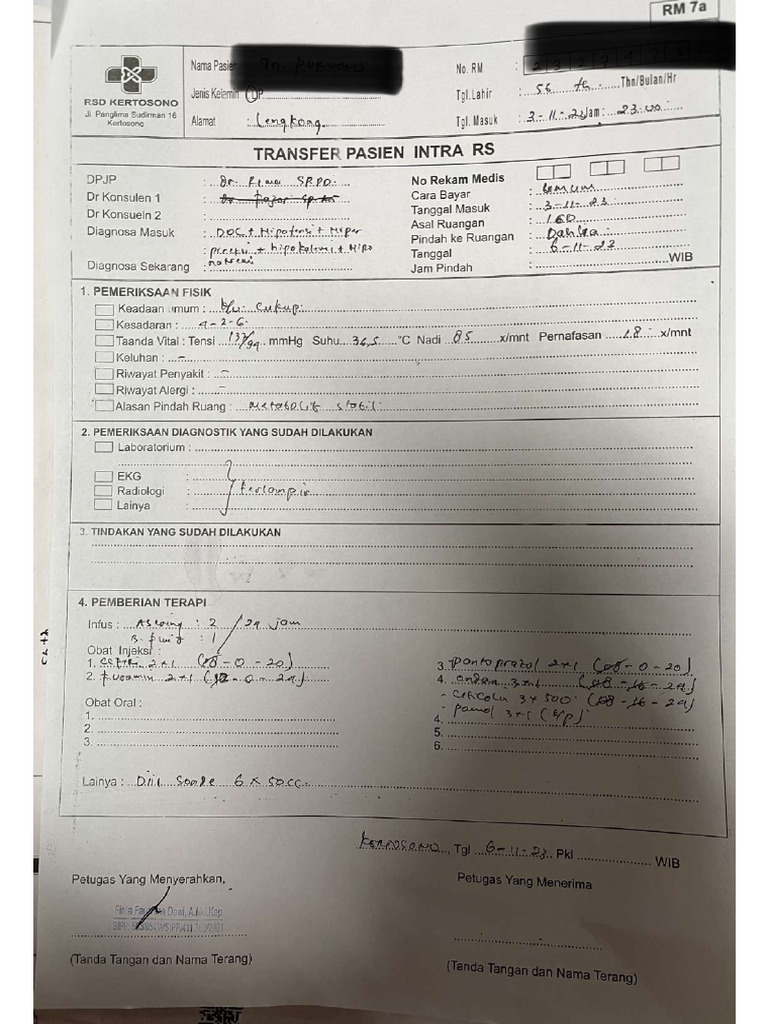 RM 7a
RSD KERTOSONO
Jl. Panglima Sudirman 16
Kertosono
Nama Pasien
Jenis Kelamin : L/P
Alamat : Lengkong
No. RM :
Tgl. Lahir : 56 th Thn/Bulan/Hr
Tgl. Masuk : 3-11-23 Jam: 23.00
TRANSFER PASIEN INTRA RS
DPJP : dr. Rima SP.PD
Dr Konsulen 1 :
Dr Konsueln 2 :
Diagnosa Masuk : DOC + Hipotensi + Hiper
pireksi + hipokalemi + Hipo
Diagnosa Sekarang :
No Rekam Medis
Cara Bayar : Umum
Tanggal Masuk : 3-11-23
Asal Ruangan : IGD
Pindah ke Ruangan :
Tanggal : 6-11-23
Jam Pindah : WIB
1. PEMERIKSAAN FISIK
Keadaan umum : k/u cukup
Kesadaran : 4-2-6
Taanda Vital : Tensi 137/94 mmHg Suhu 36,5 °C Nadi 85 x/mnt Pernafasan 18 x/mnt
Keluhan : -
Riwayat Penyakit : -
Riwayat Alergi : -
Alasan Pindah Ruang : metabolik stabil
2. PEMERIKSAAN DIAGNOSTIK YANG SUDAH DILAKUKAN
Laboratorium :
EKG :
Radiologi : terlampir
Lainya :
3. TINDAKAN YANG SUDAH DILAKUKAN
4. PEMBERIAN TERAPI
Infus : Asering : 2 / 24 jam
B. fluid : 1
Obat Injeksi :
1. 2x1 (08-0-20)
2. 2x1 (12-0-24)
3. pantoprazol 2x1 (08-0-20)
4. ondan 3x1 (08-16-24)
- citicolin 3x500 (08-16-24)
- pamol 3x1 (k/p)
Obat Oral :
1.
2.
3.
4.
5.
6.
Lainya : Diit Sonde 6 x 50cc
KERTOSONO, Tgl 6-11-23 Pkl WIB
Petugas Yang Menyerahkan,
Petugas Yang Menerima
Dewi, A.Md.Kep
(Tanda Tangan dan Nama Terang)
(Tanda Tangan dan Nama Terang)